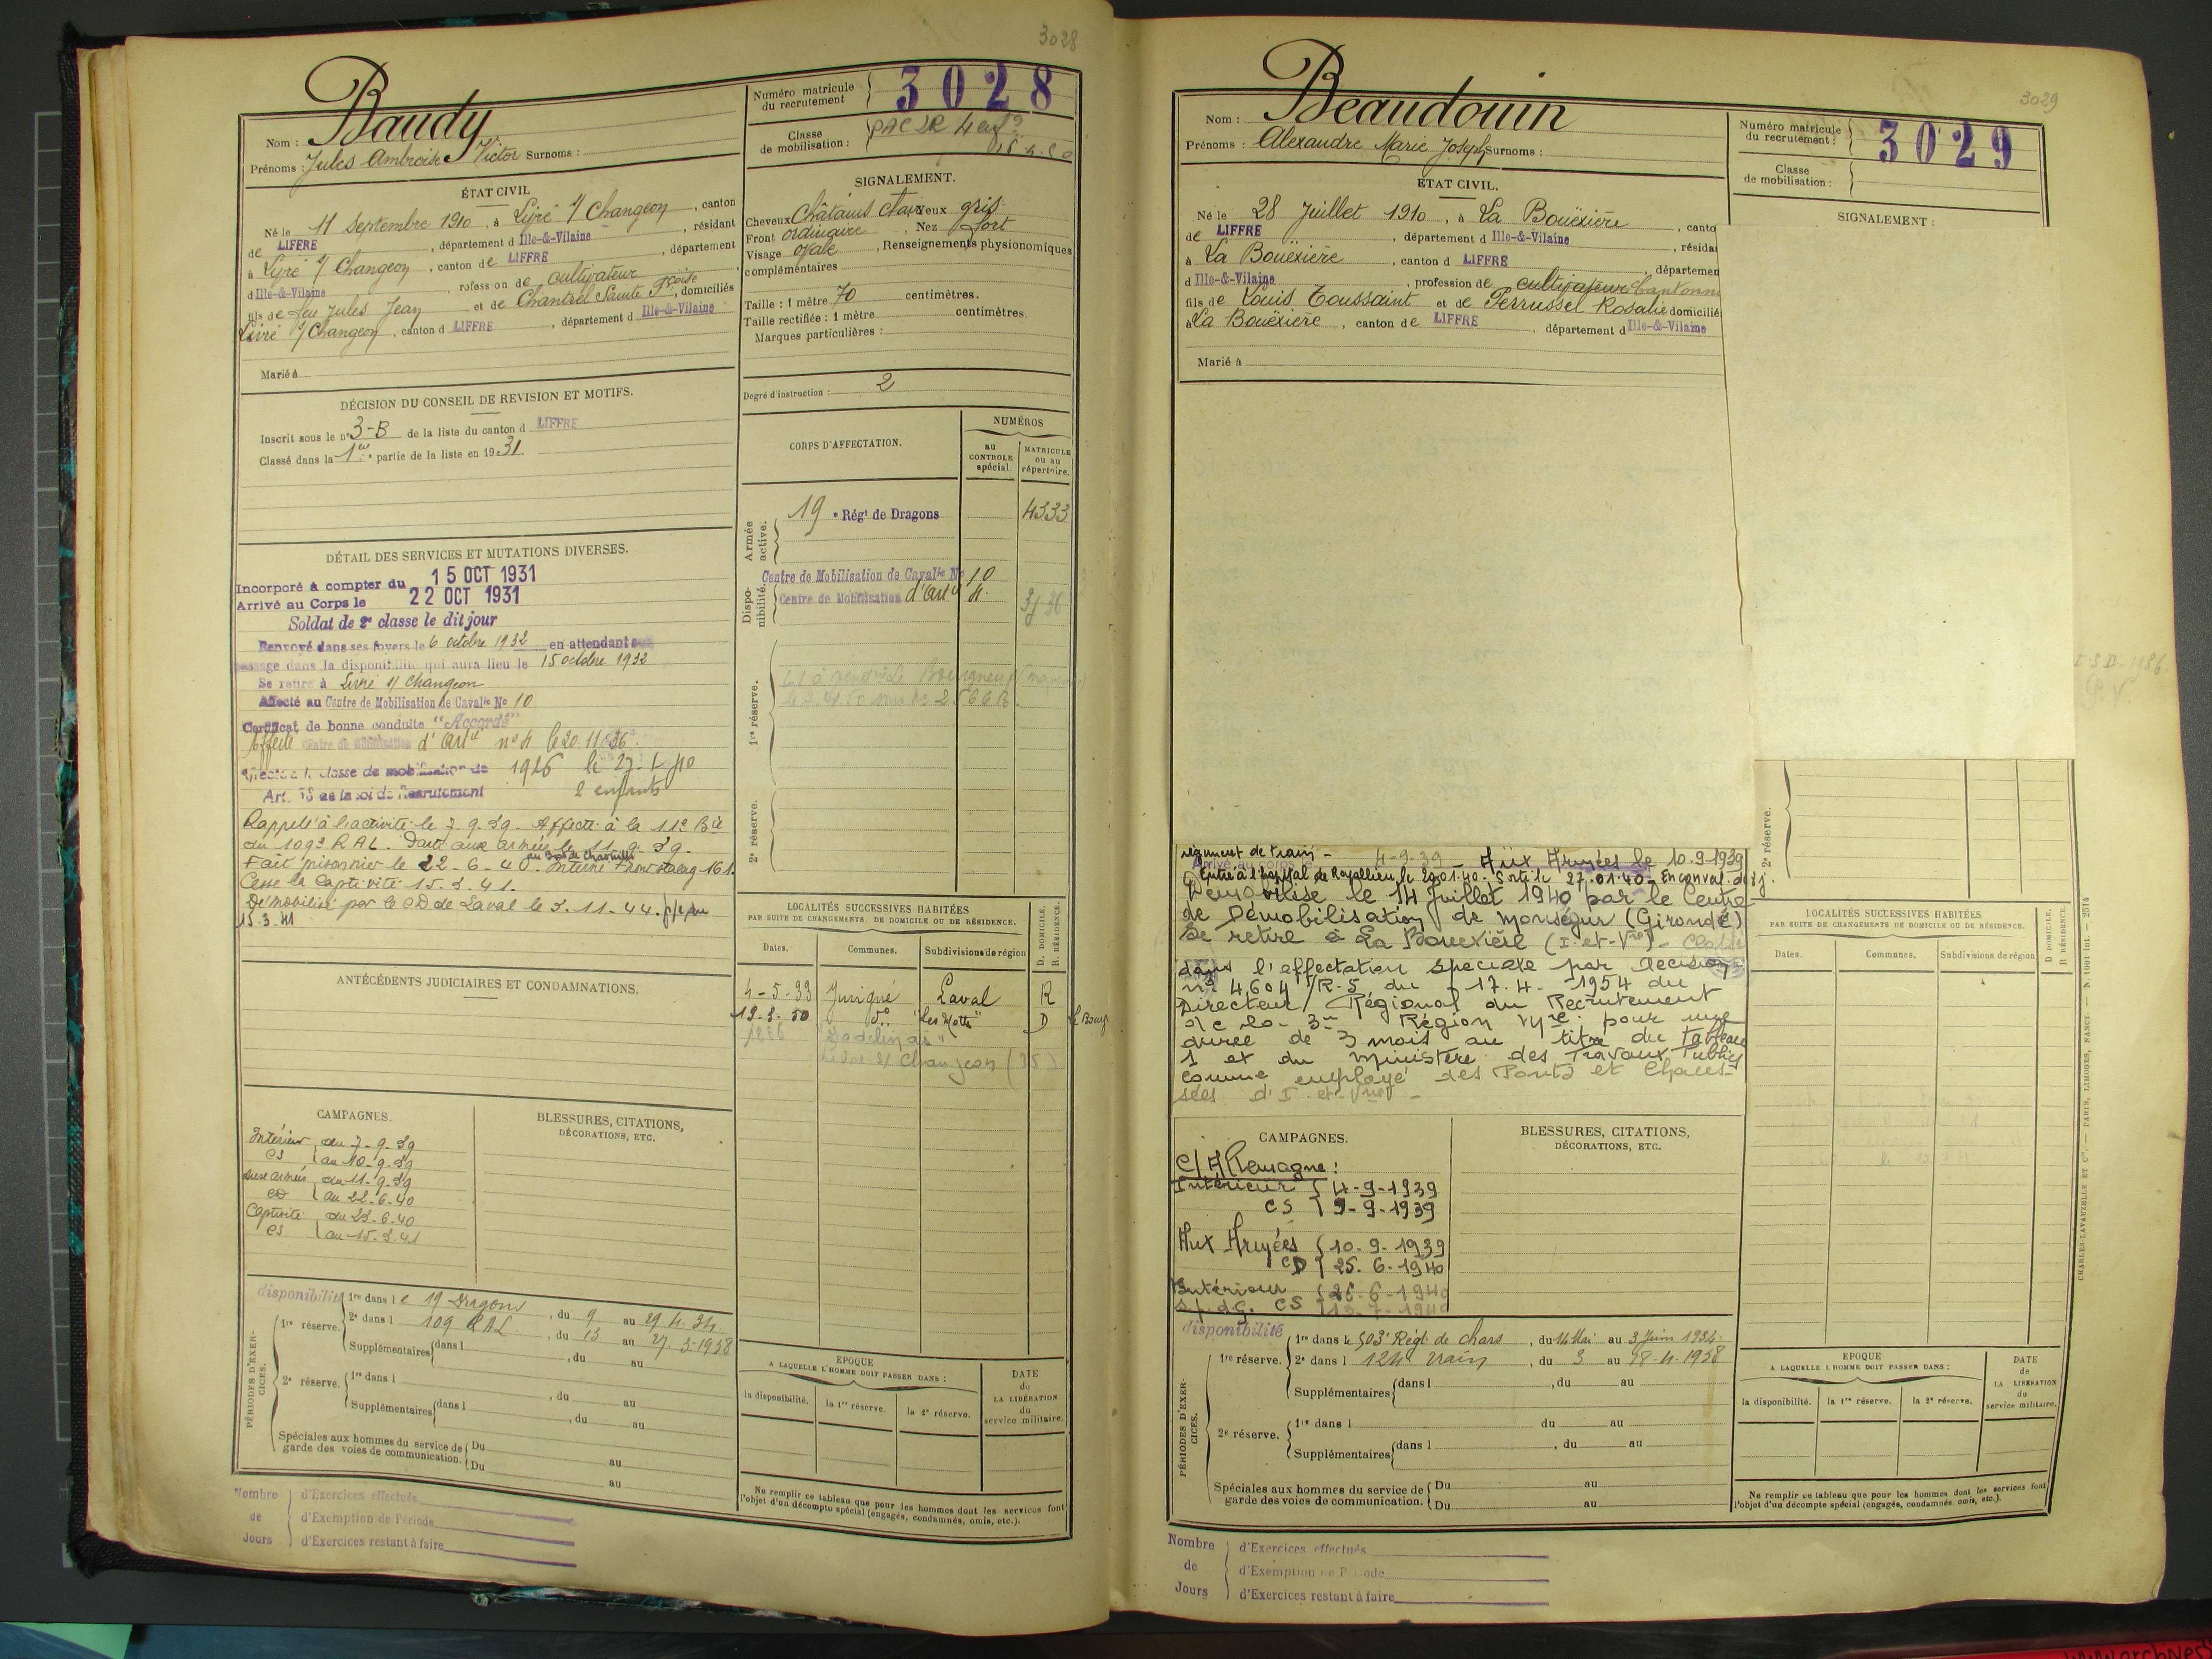 3028
Nom : Baudy
Prénoms : Jules Ambroise Victor Surnoms :
Numéro matricule du recrutement 3028
Classe de mobilisation :
ÉTAT CIVIL
Né le 11 Septembre 1910, à Livré s/ Changeon, canton
de LIFFRE, département d Ille-&-Vilaine, résidant
à Livré s/ Changeon, canton de LIFFRE, département
d Ille-&-Vilaine, profession de cultivateur
fils de feu Jules Jean et de Chantrel Sainte Fçoise, domiciliés
Livré s/ Changeon, canton d LIFFRE, département d Ille-&-Vilaine
Marié à
SIGNALEMENT.
Cheveux Châtains clair Yeux gris
Front ordinaire, Nez fort
Visage ovale, Renseignements physionomiques
complémentaires
Taille : 1 mètre 70 centimètres.
Taille rectifiée : 1 mètre centimètres.
Marques particulières :
Degré d'instruction : 2
DÉCISION DU CONSEIL DE REVISION ET MOTIFS.
Inscrit sous le n° 3-B de la liste du canton d LIFFRE
Classé dans la 1re partie de la liste en 1931.
CORPS D'AFFECTATION.
NUMÉROS
au CONTROLE spécial.
MATRICULE ou au répertoire.
Armée active.
19e Régt de Dragons 4333
Disponibilité.
Centre de Mobilisation de Cavalie No 10
Centre de Mobilisation d'Artie 4
1re réserve.
2e réserve.
DÉTAIL DES SERVICES ET MUTATIONS DIVERSES.
Incorporé à compter du 15 OCT 1931
Arrivé au Corps le 22 OCT 1931
Soldat de 2e classe le dit jour
Renvoyé dans ses foyers le 6 octobre 1932 en attendant son
passage dans la disponibilité qui aura lieu le 15 octobre 1932
Se retire à Livré s/ Changeon
Affecté au Centre de Mobilisation de Cavalie No 10
Certificat de bonne conduite "Accordé"
Affecté Centre de Mobilisation d'Artie n° 4 le 20.11.36.
Affecté à la classe de mobilisation de 1926
Art. 58 de la loi de Recrutement 2 enfants
Rappelé à l'activité le 7.9.39. Affecté à la 11e Bie
du 109e RAL. Parti aux armées le 11.9.39.
Fait prisonnier le 22-6-40 Interné Front Stalag 161.
Cesse la captivité 15.3.41.
Démobilisé par le CD de Laval le 3.11.44.
15.3.41
ANTÉCÉDENTS JUDICIAIRES ET CONDAMNATIONS.
LOCALITÉS SUCCESSIVES HABITÉES
PAR SUITE DE CHANGEMENTS DE DOMICILE OU DE RÉSIDENCE.
Dates. Communes. Subdivisions de région D. DOMICILE. R. RÉSIDENCE.
4-5-33 Juvigné Laval R
do D
CAMPAGNES.
Intérieur du 7-9-39
CS au 10-9-39
aux armées du 11-9-39
CD au 22-6-40
Captivité du 23-6-40
CS au 15.3.41
BLESSURES, CITATIONS,
DÉCORATIONS, ETC.
PÉRIODES D'EXERCICES.
disponibilité
1re réserve. 1re dans le 19 Dragons, du 9 au 29.4.34.
2e dans l 109 RAL, du 13 au 27.5-1938
Supplémentaires dans l, du au
2e réserve. 1re dans l, du au
Supplémentaires dans l, du au
Spéciales aux hommes du service de garde des voies de communication. Du au
Du au
EPOQUE
A LAQUELLE L'HOMME DOIT PASSER DANS :
la disponibilité. la 1re réserve. la 2e réserve.
DATE de LA LIBÉRATION du service militaire.
Ne remplir ce tableau que pour les hommes dont les services font
l'objet d'un décompte spécial (engagés, condamnés, omis, etc.).
Nombre de Jours
d'Exercices effectués
d'Exemption de Période
d'Exercices restant à faire
3029
Nom : Beaudouin
Prénoms : Alexandre Marie Joseph Surnoms :
Numéro matricule du recrutement : 3029
Classe de mobilisation :
ÉTAT CIVIL.
Né le 28 Juillet 1910, à La Bouëxière, canto
de LIFFRE, département d Ille-&-Vilaine, résida
à La Bouëxière, canton d LIFFRE, départemen
d Ille-&-Vilaine, profession de cultivateur Cantonni
fils de Louis Toussaint et de Perrussel Rosalie domicilié
à La Bouëxière, canton de LIFFRE, département d Ille-&-Vilaine
Marié à
SIGNALEMENT :
régiment de train - 4-9-39 - Aux Armées le 10.9.1939
Entré à l'hôpital de Royallieu le 20.01.40. Sorti le 27.01.40 - En conval.
Démobilisé le 14 Juillet 1940 par le Centre
de Démobilisation de Monségur (Gironde)
Se retire à La Bouexière (I.-et-Vne) - Classé
dans l'affectation spéciale par décision
n° 4604/R-5 du 17.4.1954 du
Directeur Régional du Recrutement
de la 3me Région Mre. pour une
durée de 3 mois au titre du Tableau
1 et du Ministère des Travaux Publics
comme employé des Ponts et Chaus-
sées d'I.-et-Vne -
2e réserve.
LOCALITÉS SUCCESSIVES HABITÉES
PAR SUITE DE CHANGEMENTS DE DOMICILE OU DE RÉSIDENCE.
Dates. Communes. Subdivisions de région D. DOMICILE. R. RÉSIDENCE
CAMPAGNES.
C/ Allemagne :
Intérieur 4-9-1939
CS 9-9-1939
Aux Armées 10.9.1939
CD 25.6-1940
Intérieur 26-6-1940
s.p.d.G. CS 13-7-1940
BLESSURES, CITATIONS,
DÉCORATIONS, ETC.
PÉRIODES D'EXERCICES.
disponibilité
1re réserve. 1re dans le 503e Régt de chars, du 14 Mai au 3 Juin 1934.
2e dans l 124 train, du 3 au 18-4-1938
Supplémentaires dans l, du au
2e réserve. 1re dans l du au
Supplémentaires dans l, du au
Spéciales aux hommes du service de garde des voies de communication. Du au
Du au
EPOQUE
A LAQUELLE L'HOMME DOIT PASSER DANS :
la disponibilité. la 1re réserve. la 2e réserve.
DATE de LA LIBERATION du service militaire.
Ne remplir ce tableau que pour les hommes dont les services font
l'objet d'un décompte spécial (engagés, condamnés, omis, etc.).
Nombre de Jours
d'Exercices effectués
d'Exemption de Période
d'Exercices restant à faire
CHARLES-LAVAUZELLE ET Cie. — PARIS, LIMOGES, NANCY.